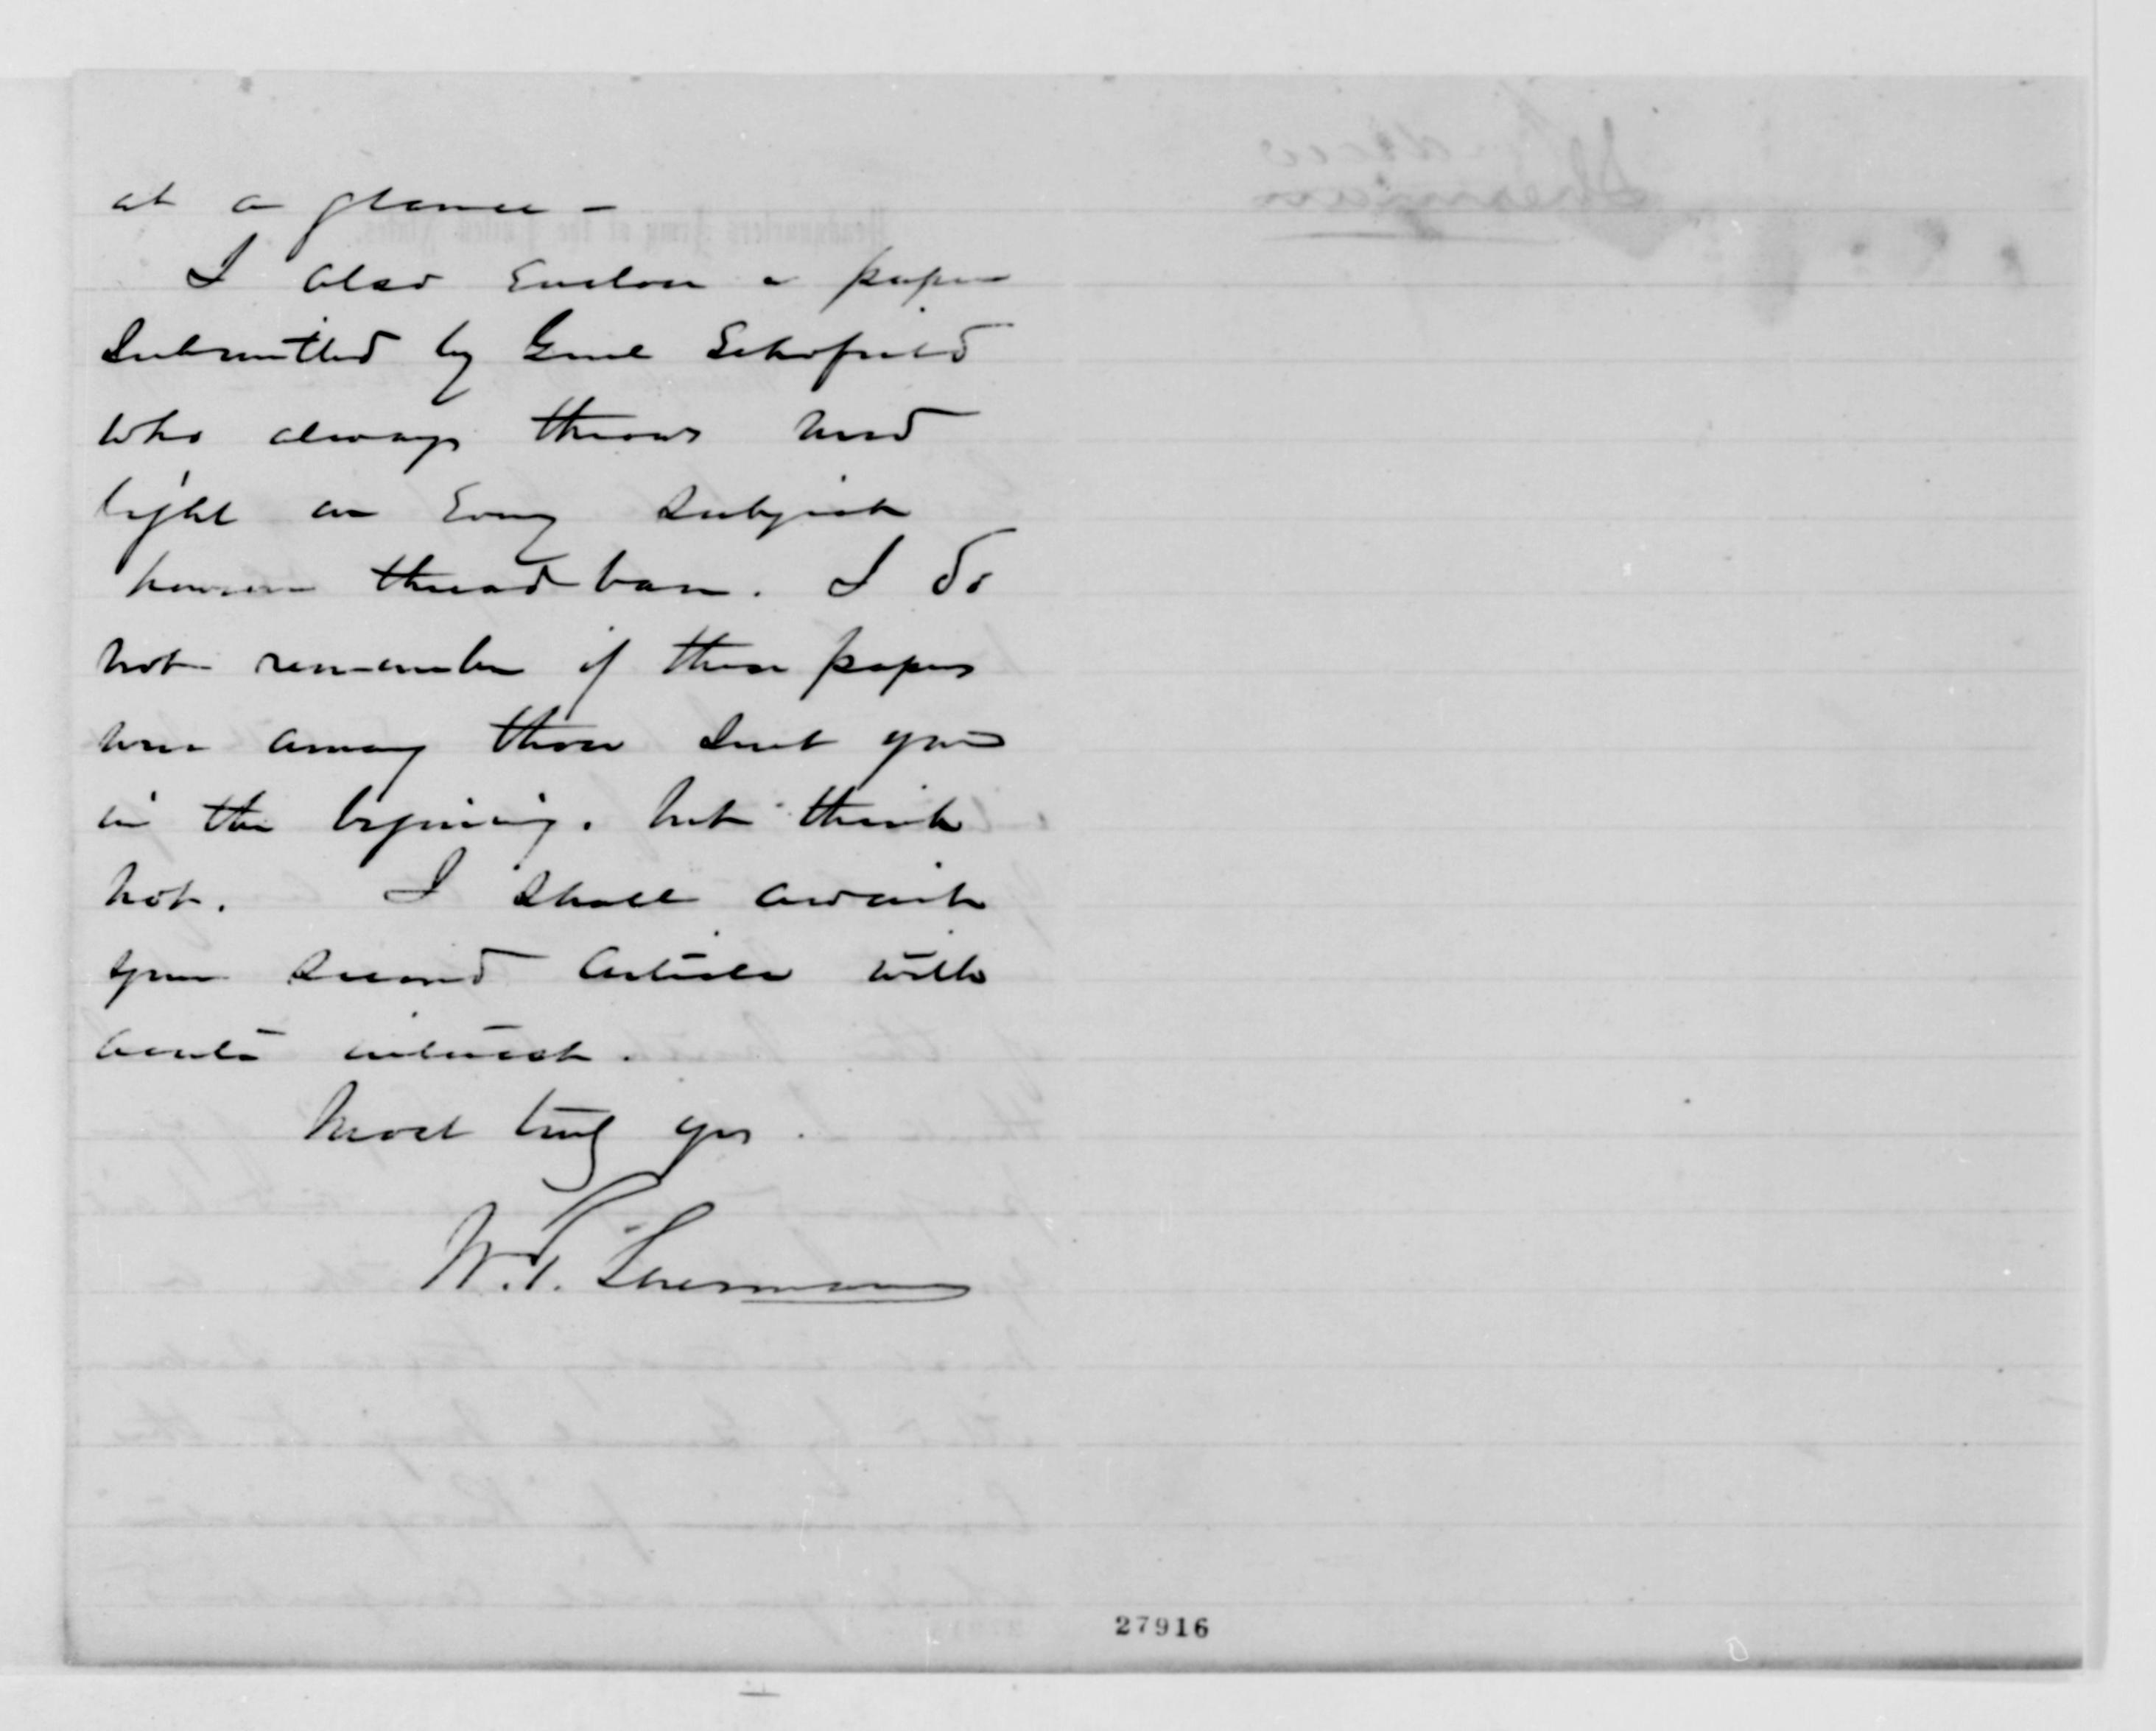 at a glance -
I also Enclose a paper
Submitted by Genl Schofield
who always throws new
light on Every Subject
however threadbare. I do
not remember if these papers
were among those Sent you
in the begining. but think
not. I Shall await
your Second Article with
acute interest.
Most truly yrs.
W.T. Sherman
27916